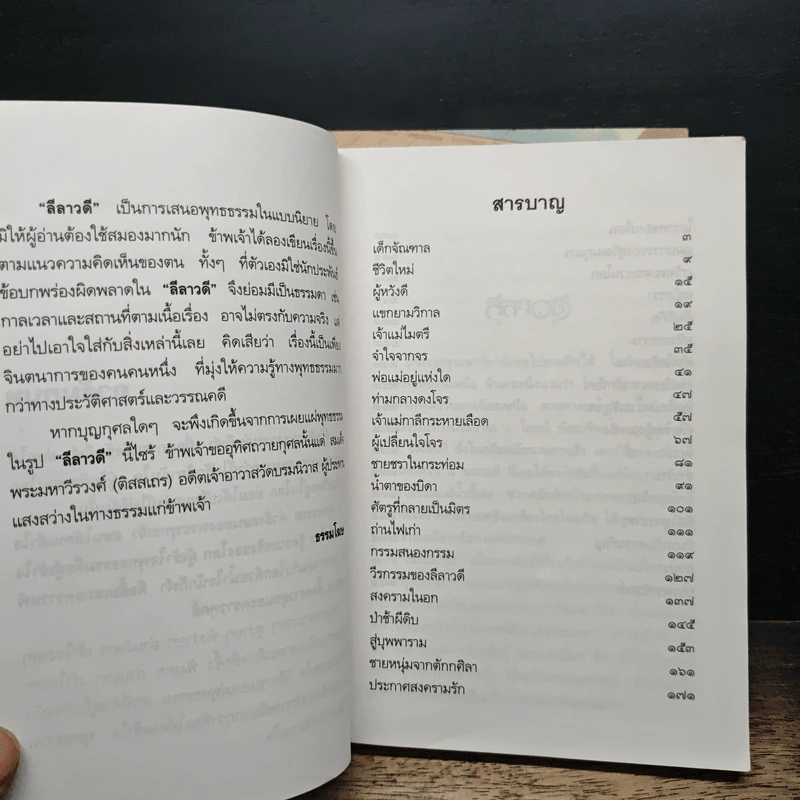 "ลีลาวดี" เป็นการเสนอพุทธธรรมในแบบนิยาย โดย
มิให้ผู้อ่านต้องใช้สมองมากนัก ข้าพเจ้าได้ลองเขียนเรื่องนี้ขึ้น
ตามแนวความคิดเห็นของตน ทั้งๆ ที่ตัวเองมิใช่นักประพันธ์
ข้อบกพร่องผิดพลาดใน "ลีลาวดี" จึงย่อมมีเป็นธรรมดา เช่น
กาลเวลาและสถานที่ตามเนื้อเรื่อง อาจไม่ตรงกับความจริง
อย่าไปเอาใจใส่กับสิ่งเหล่านี้เลย คิดเสียว่า เรื่องนี้เป็นเพียง
จินตนาการของคนคนหนึ่ง ที่มุ่งให้ความรู้ทางพุทธธรรมมาก
กว่าทางประวัติศาสตร์และวรรณคดี
หากบุญกุศลใดๆ จะพึงเกิดขึ้นจากการเผยแผ่พุทธธรรม
ในรูป "ลีลาวดี" นี้ไซร้ ข้าพเจ้าขออุทิศถวายกุศลนั้นแด่ สมเด็จ
พระมหาวีรวงศ์ (ติสสเถร) อดีตเจ้าอาวาสวัดบรมนิวาส ผู้ประทาน
แสงสว่างในทางธรรมแก่ข้าพเจ้า
ธรรมโฆษ
สารบาญ
เด็กจัณฑาล ๓
ชีวิตใหม่ ๙
ผู้หวังดี ๑๕
แขกยามวิกาล ๑๙
เจ้าแม่ไมตรี ๒๕
จำใจจากจร ๓๕
พ่อแม่อยู่แห่งใด ๔๑
ท่ามกลางดงโจร ๔๗
เจ้าแม่กาลีกระหายเลือด ๕๗
ผู้เปลี่ยนใจโจร ๖๗
ชายชราในกระท่อม ๘๑
น้ำตาของบิดา ๙๑
ศัตรูที่กลายเป็นมิตร ๑๐๑
ถ่านไฟเก่า ๑๑๑
กรรมสนองกรรม ๑๑๙
วีรกรรมของลีลาวดี ๑๒๗
สงครามในอก ๑๓๗
ป่าช้าผีดิบ ๑๔๕
สู่บุพพาราม ๑๕๓
ชายหนุ่มจากตักกศิลา ๑๖๑
ประกาศสงครามรัก ๑๗๑